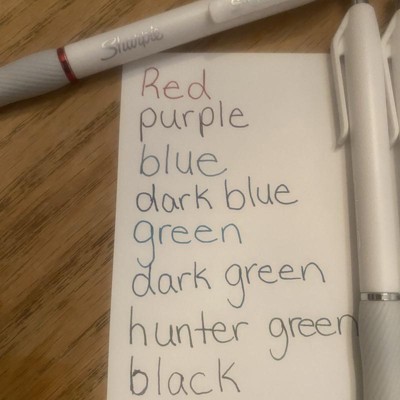 Sharpie
Red
purple
blue
dark blue
green
dark green
hunter green
black